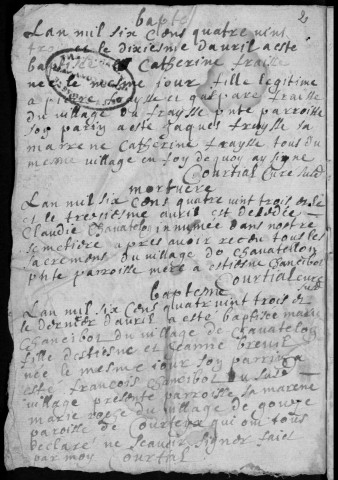 baptes
2
Lan mil six Cens quatre vint
trois et le dixiesme dauril a esté
baptisée Catherine fraisse
née le mesme jour fille legitime
a pierre fraysse et gaspare fraisse
du village du fraysse pnte parroisse
son parin a esté Jaques fraysse sa
marrene Catherine fraysse tous du
mesme village en foy de quoy ay signe
Courtial Curé susd
mortuere
Lan mil six Cens quatre vint trois
et le tresiesme auril est decedée
Claudie Chavatelou inhumée dans nostre
semetiere apres avoir receu tous les
sacremens du village de Chavatelou
pnte parroisse mere a estiesne Chancibot
Courtial cure
susd
baptesme
Lan mil six Cens quatre vint trois et
le dernier dauril a esté baptisée marie
Chancibot du village de Chavatelou
fille destiesne et Jeanne breuil
née le mesme jour son parrin a
esté francois Chancibot du susd
village presente parroisse sa marene
marie du village de
paroisse de qui ont tous
declaré ne scavoir signer faict
par moy Courtial